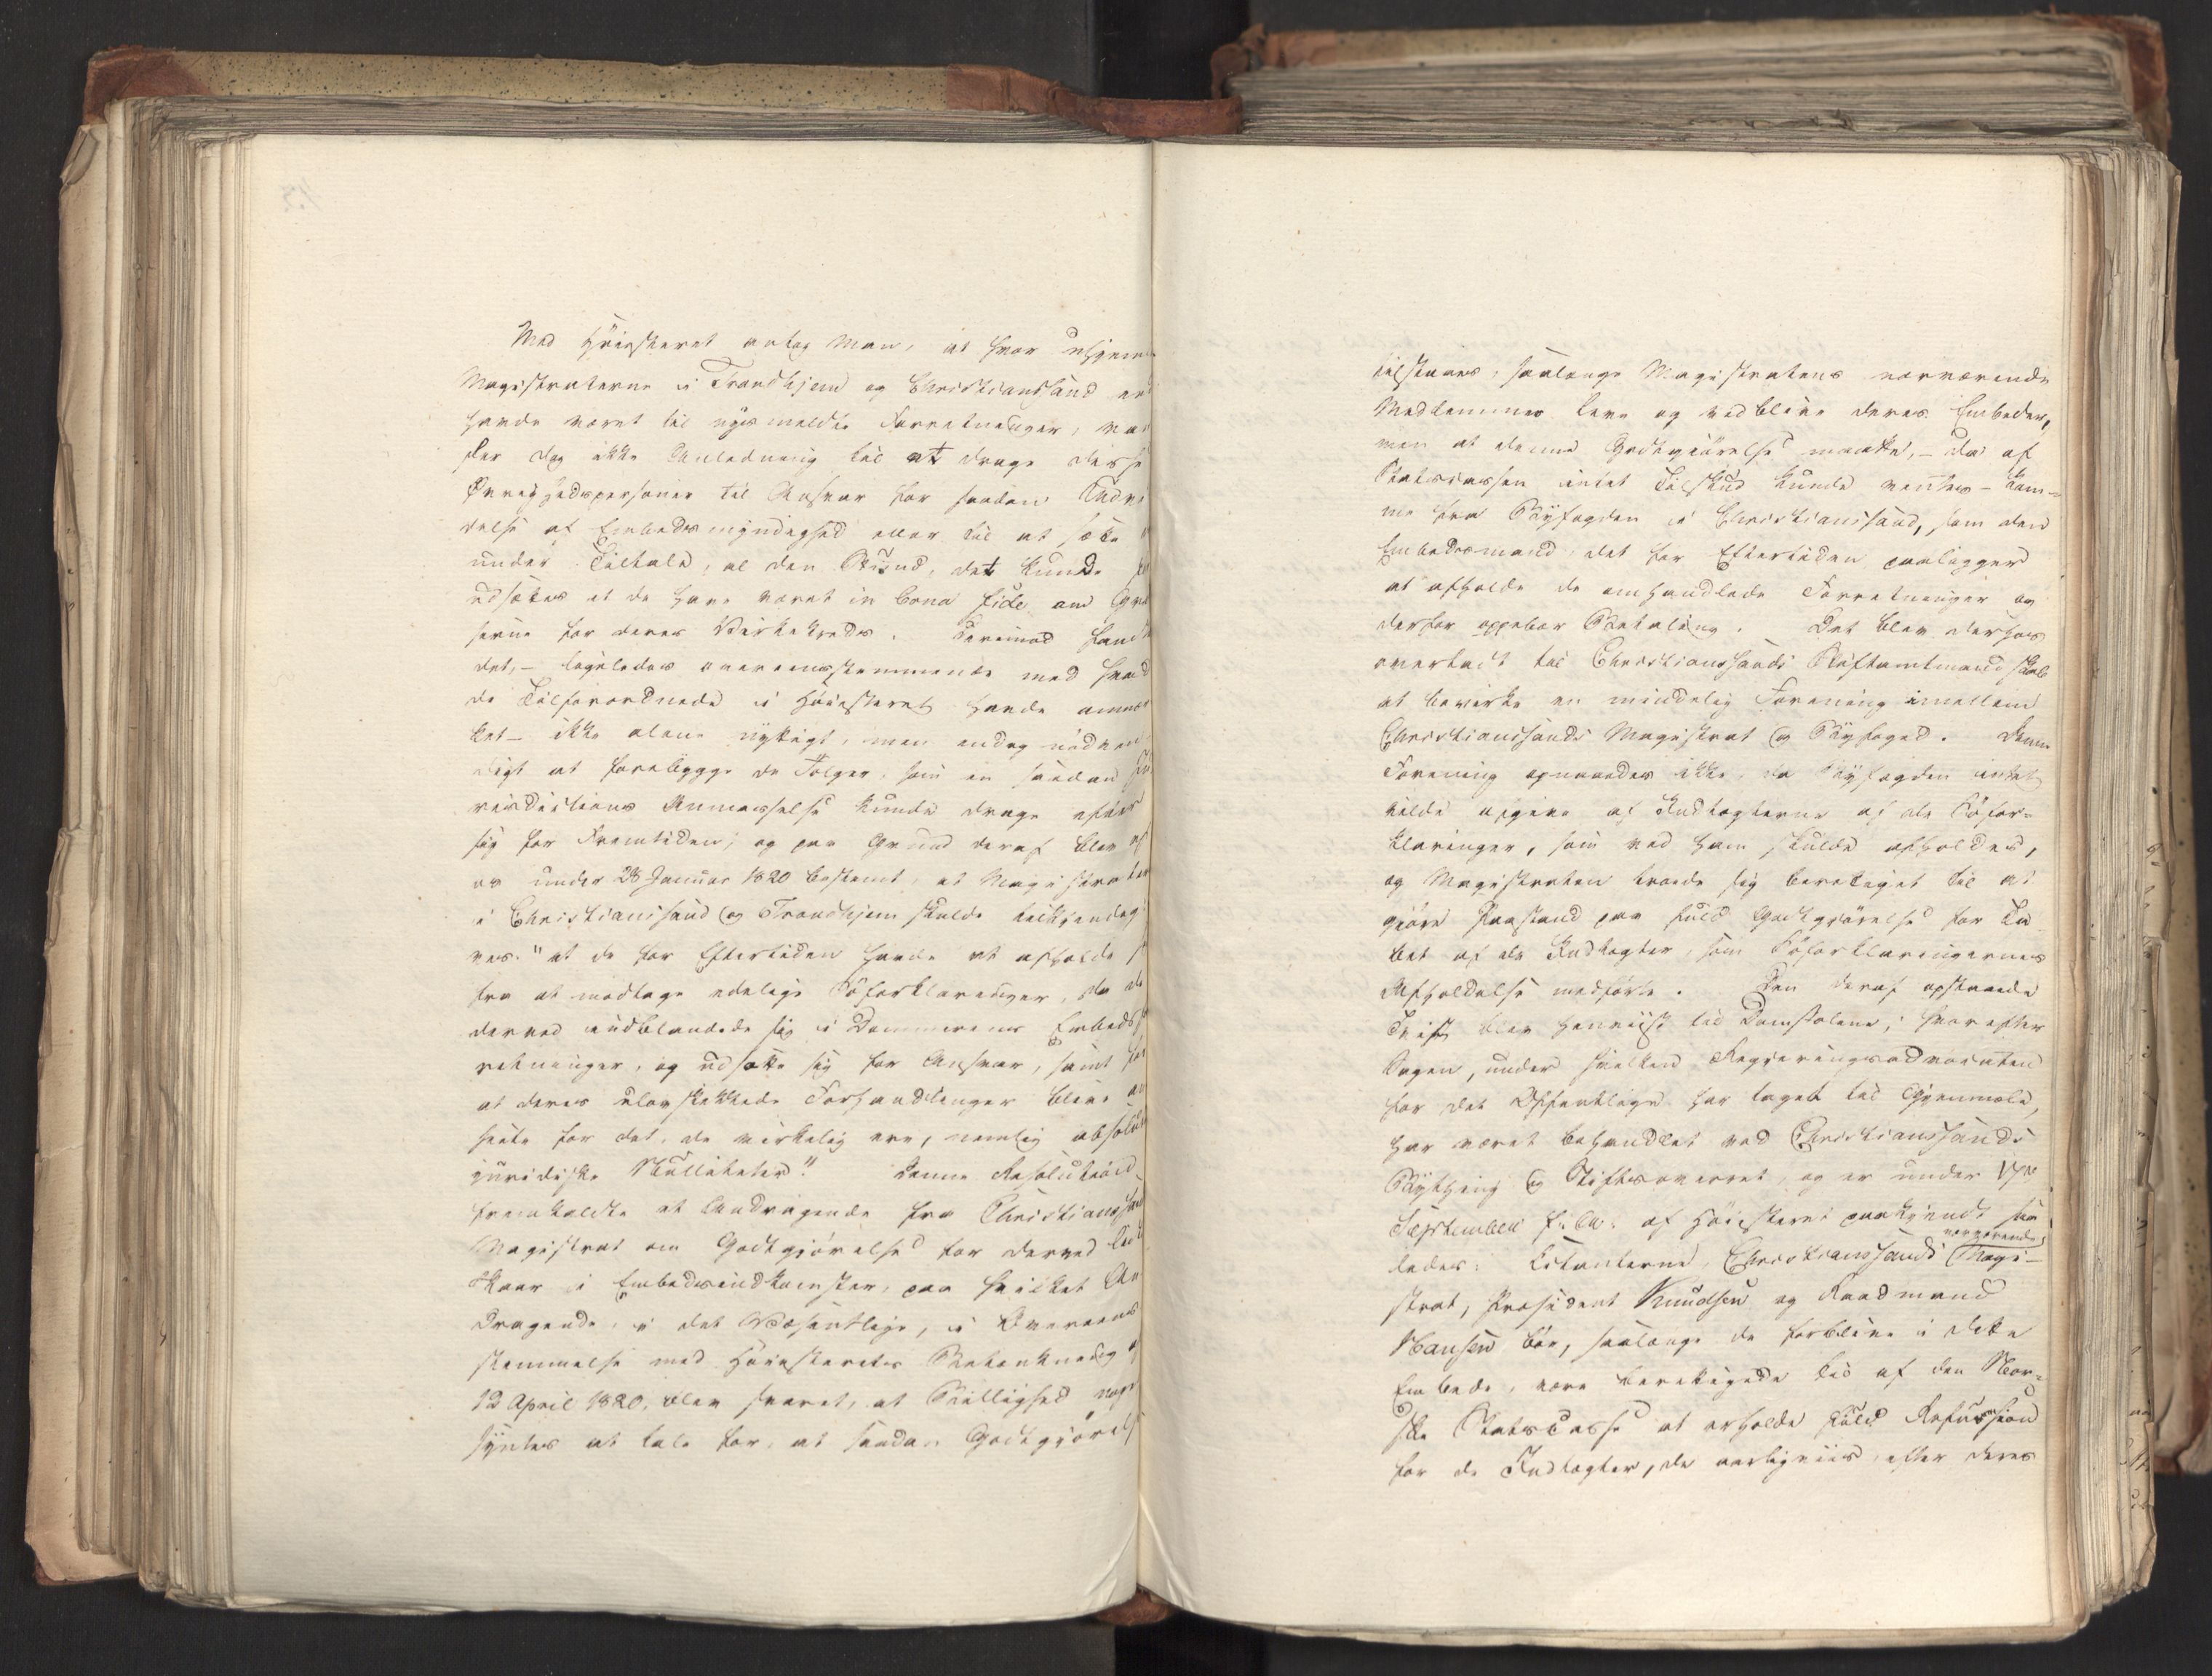 Med Høiesteret antog Man, at hvor uhjem
Magistraterne i Trondhjem og Christianssand end
havde været til nysmeldte Forretninger, var
der dog ikke Anledning til at drage disse
Øvrighedspersoner til Ansvar for saadan Udvi
delse af Embedsmyndighed eller til at sætte
under Tiltale, al den Stund, det kunde for
udsættes at de have været in bona fide om Græn
serne for deres Virkekreds. Derimod fandt
det, – ligeledes overeensstemmende med hvad
de Tilforordnede i Høiesteret havde anmær
ket – ikke alene nyttigt, men endog nødven
digt at forebygge de Følger, som en saadan Ju
risdictions Anmasselse kunde drage efter
sig for Fremtiden; og paa Grund deraf blev
os under 28 Januar 1820 bestemt, at Magistraten
i Christianssand og Trondhjem skulde tilkjendegi
ves: "at de for Eftertiden havde at afholde
fra at modtage edelige Søforklaringer, da de
derved indblandede sig i Dommerens Embedsfor
retninger, og udsatte sig for Ansvar, samt for
at deres ulovskikkede Forhandlinger bleve an
seete for det, de virkelig ere, nemlig absolute
juridiske Nulliteter." Denne Resolution
fremkaldte et Andragende fra Christianssand
Magistrat om Godtgjørelse for derved lidt
Skaar i Embedsindkomster, paa hvilket An
dragende, i det Væsentlige, i Overeens
stemmelse med Høiesterets Betænkning af
12 April 1820, blev svaret, at Billighed nogen
syntes at tale for, at saadan Godtgjørelse
tilstaaes, saalænge Magistratens nærværende
Medlemmer leve og vedblive deres Embeder,
men at denne Godtgjørelse maatte, – da af
Statscassen intet Tilskud kunde ventes – kom-
me fra Byfogden i Christianssand, som den
Embedsmand, det for Eftertiden paaligger
at afholde de omhandlede Forretninger og
derfor oppebær Betaling. Det blev derhos
overladt til Christianssands Stiftamtmandskab
at bevirke en mindelig Forening imellem
Christianssands Magistrat og Byfoged. Denne
Forening opnaaedes ikke, da Byfogden intet
vilde afgive af Indtægterne af de Søfor-
klaringer, som ved ham skulde afholdes,
og Magistraten troede sig berettiget til at
gjøre Paastand paa fuld Godtgjørelse for Ta
bet af de Indtægter, som Søforklaringernes
Afholdelse medførte. Den deraf opstaaede
Tvist blev henviist til Domstolene, hvorefter
Sagen, under hvilken Regjeringsadvocaten
for det Offentlige har taget til Gjenmæle,
har været behandlet ved Christianssands
Bything og Stiftsoverret, og er under 17de
September f. A. af Høiesteret paakjendt saa
ledes: Citanterne, Christianssands nærværende Magi-
strat, Præsident Knudsen og Raadmand
Nansen bør, saalænge de forblive i dette
Embede, være berettigede til af den Nor-
ske Statscasse at erholde fuld Refusion
for de Indtægter, de aarligviis, efter deres